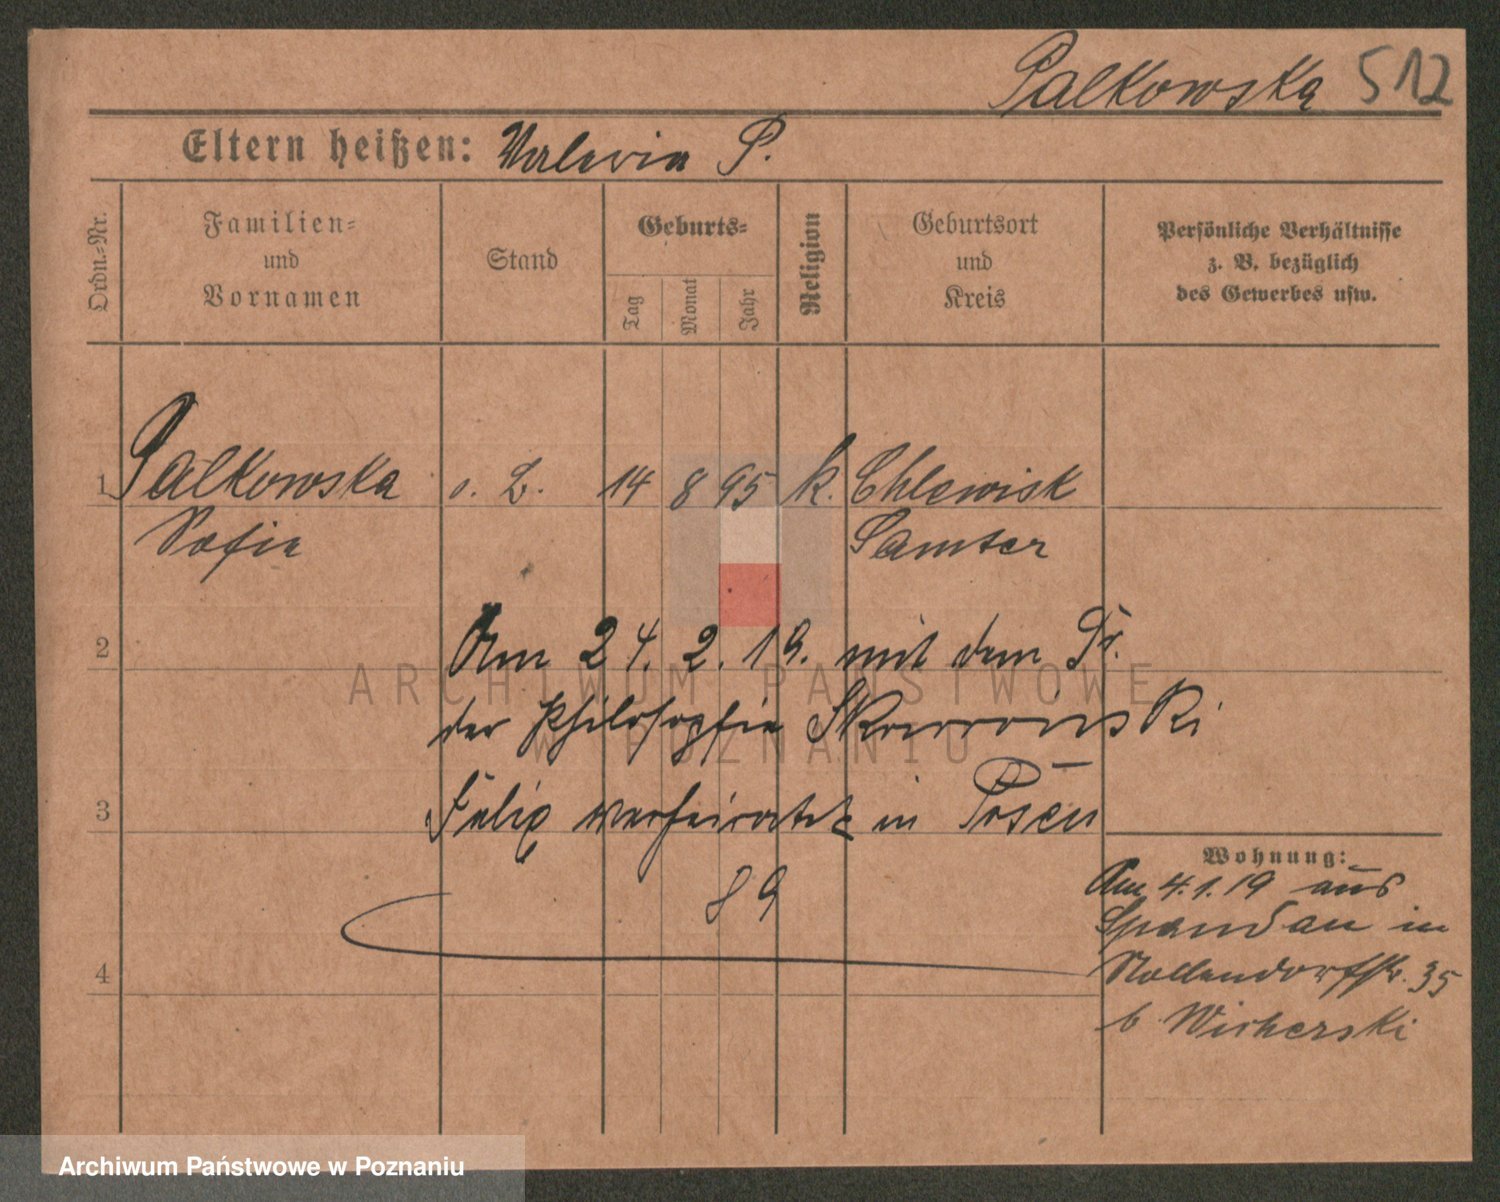 Palkowska 512
Eltern heißen: Valeria P.
Ordn.-Nr.
Familien- und Vornamen
Stand
Geburts-
Tag
Monat
Jahr
Religion
Geburtsort und Kreis
Persönliche Verhältnisse
z. B. bezüglich
des Gewerbes usw.
1 Palkowska o. B. 14 8 95 k. Chlewisk
Sofia Samter
2 Am 24. 2. 19. mit dem Dr.
der Philosophie Skowronski
3 Felix verheiratet in Posen
89
Wohnung:
Am 4.1.19 aus
Spandau in
4 Nollendorfstr. 35
b Wicherski
ARCHIWUM PAŃSTWOWE
W POZNANIU
Archiwum Państwowe w Poznaniu